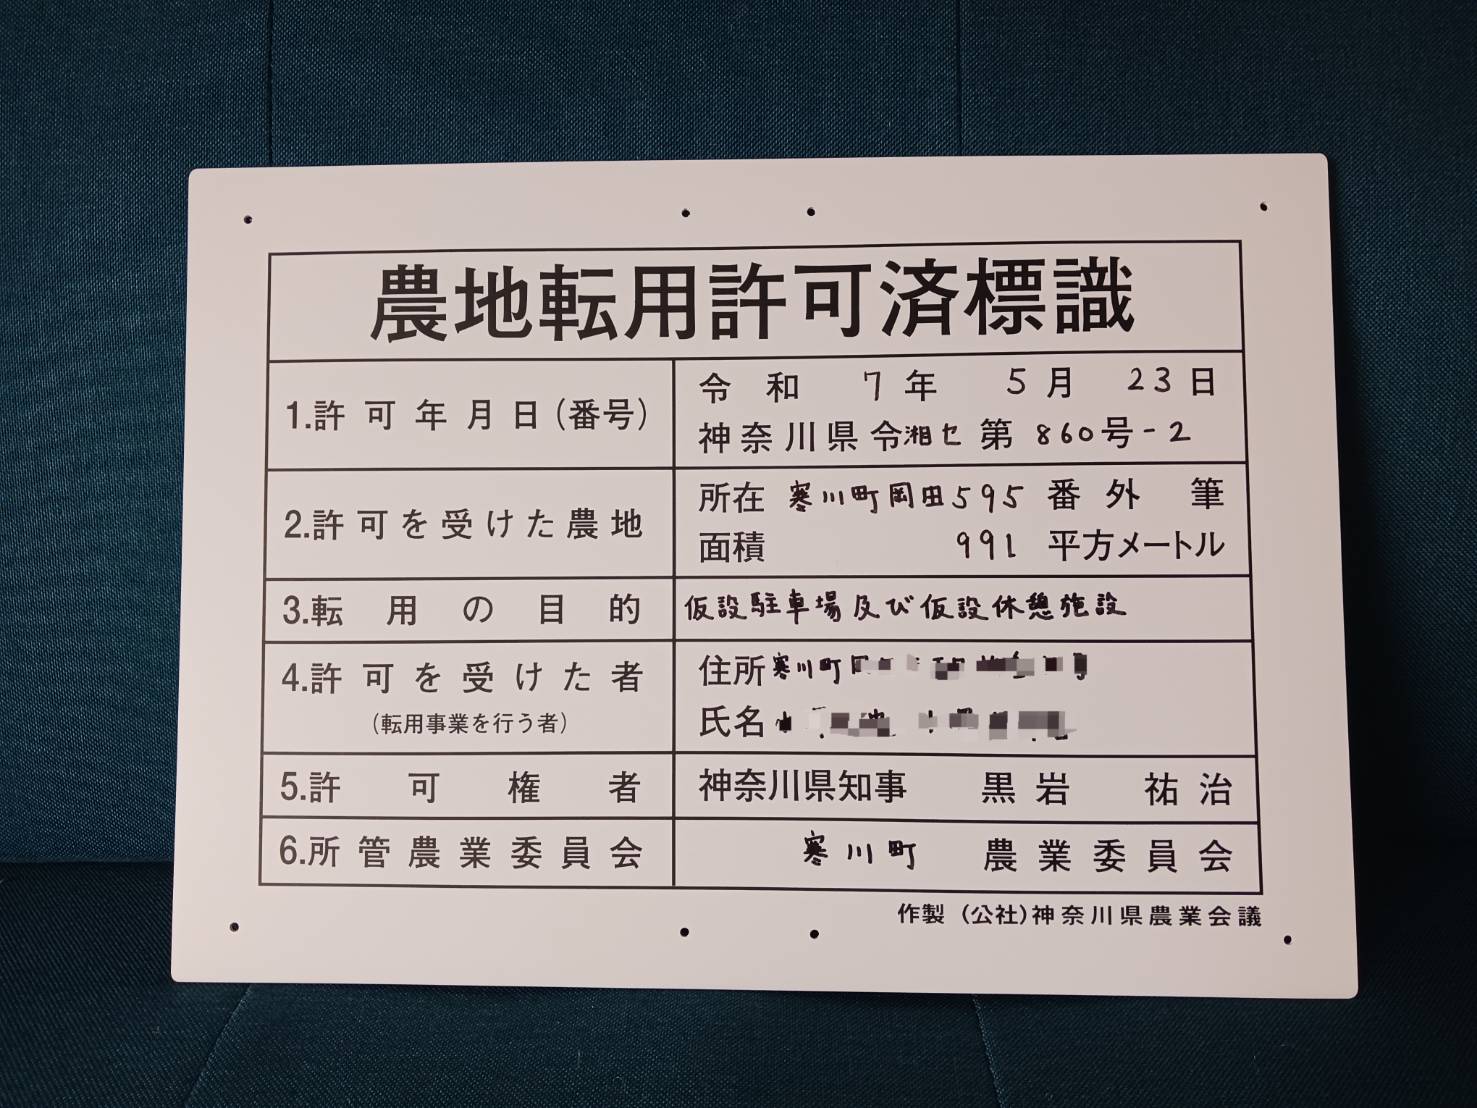 農地転用許可済標識
1.許可年月日(番号)
令和 7年 5月 23日
神奈川県令湘セ第860号-2
2.許可を受けた農地
所在 寒川町岡田595番外 筆
面積 991平方メートル
3.転用の目的
仮設駐車場及び仮設休憩施設
4.許可を受けた者
(転用事業を行う者)
住所 寒川町
氏名
5.許可権者
神奈川県知事 黒岩 祐治
6.所管農業委員会
寒川町 農業委員会
作製 (公社)神奈川県農業会議